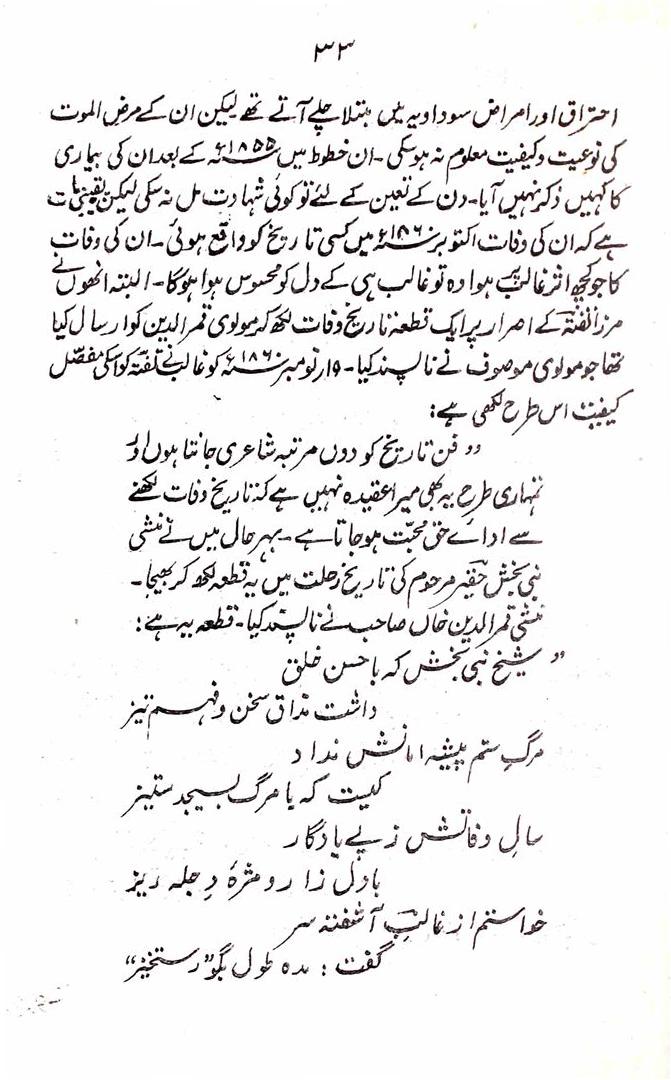 ۳۳
احتراق اور امراض سوداویہ میں مبتلا چلے آتے تھے لیکن ان کے مرض الموت
کی نوعیت و کیفیت معلوم نہ ہو سکی ۔ ان خطوط میں ۱۸۵۵ء کے بعد ان کی بیماری
کا کہیں ذکر نہیں آیا۔ دن کے تعین کے لئے تو کوئی شہادت مل نہ سکی لیکن یقینی بات
ہے کہ ان کی وفات اکتوبر ۱۸۶۰ء میں کسی تاریخ کو واقع ہوئی ۔ ان کی وفات
کا جو کچھ اثر غالب پر ہوا وہ تو غالب ہی کے دل کو محسوس ہوا ہوگا ۔ البتہ انھوں نے
مرزا تفتہ کے اصرار پر ایک قطعۂ تاریخ وفات لکھ کر مولوی قمر الدین کو ارسال کیا
تھا جو مولوی موصوف نے ناپسند کیا ۔ ۱۹ نومبر ۱۸۶۰ء کو غالب نے تفتہ کو اسکی مفصّل
کیفیت اس طرح لکھی ہے :
” فن تاریخ کو دون مرتبہ شاعری جانتا ہوں اور
تمہاری طرح یہ بھی میرا عقیدہ نہیں ہے کہ تاریخ وفات لکھنے
سے ادائے حق محبت ہو جاتا ہے ۔ بہر حال میں نے منشی
نبی بخش حقیر مرحوم کی تاریخ رحلت میں یہ قطعہ لکھ کر بھیجا ۔
منشی قمر الدین خاں صاحب نے ناپسند کیا ۔ قطعہ یہ ہے :
” شیخ نبی بخش کہ با حسن خلق
داشت مذاق سخن و فہم تیز
مرگِ ستم پیشہ امانش نداد
کیست کہ با مرگ بسیجد ستیز
سالِ وفاتش ز پے یادگار
با دل زار و مژۂ دجلہ ریز
خواستم از غالبِ آشفتہ سر
گفت : مدہ طول بگو ”رستخیز“